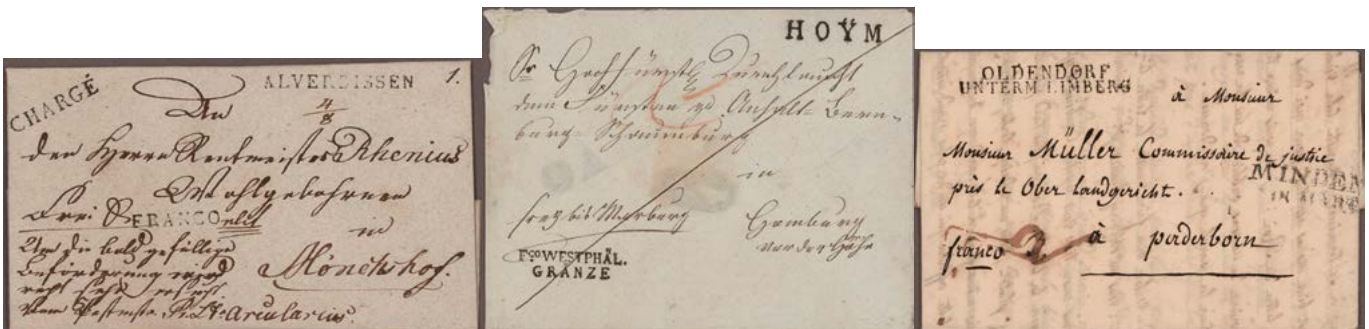 CHARGÉ
ALVERDISSEN
1.
An
4/8
den Herrn Rentmeister Rhenius
Wohlgebohren
frei
FRANCO
in
Mönchshof.
Um die bald gefällige
Beförderung wird
recht sehr ersucht
vom Postmstr. Pr. Lt. Arcularius.
HOŸM
Sr Hochfürstl Durchlaucht
dem Fürsten zu Anhalt-Bern-
burg-Schaumburg
in
frey bis Marburg
Homburg
vor der Höhe
Fco WESTPHÄL.
GRÄNZE
OLDENDORF
UNTERM LIMBERG
à Monsieur
Monsieur Müller Commissaire de justice
près le Ober landgericht.
MINDEN
franco
à paderborn